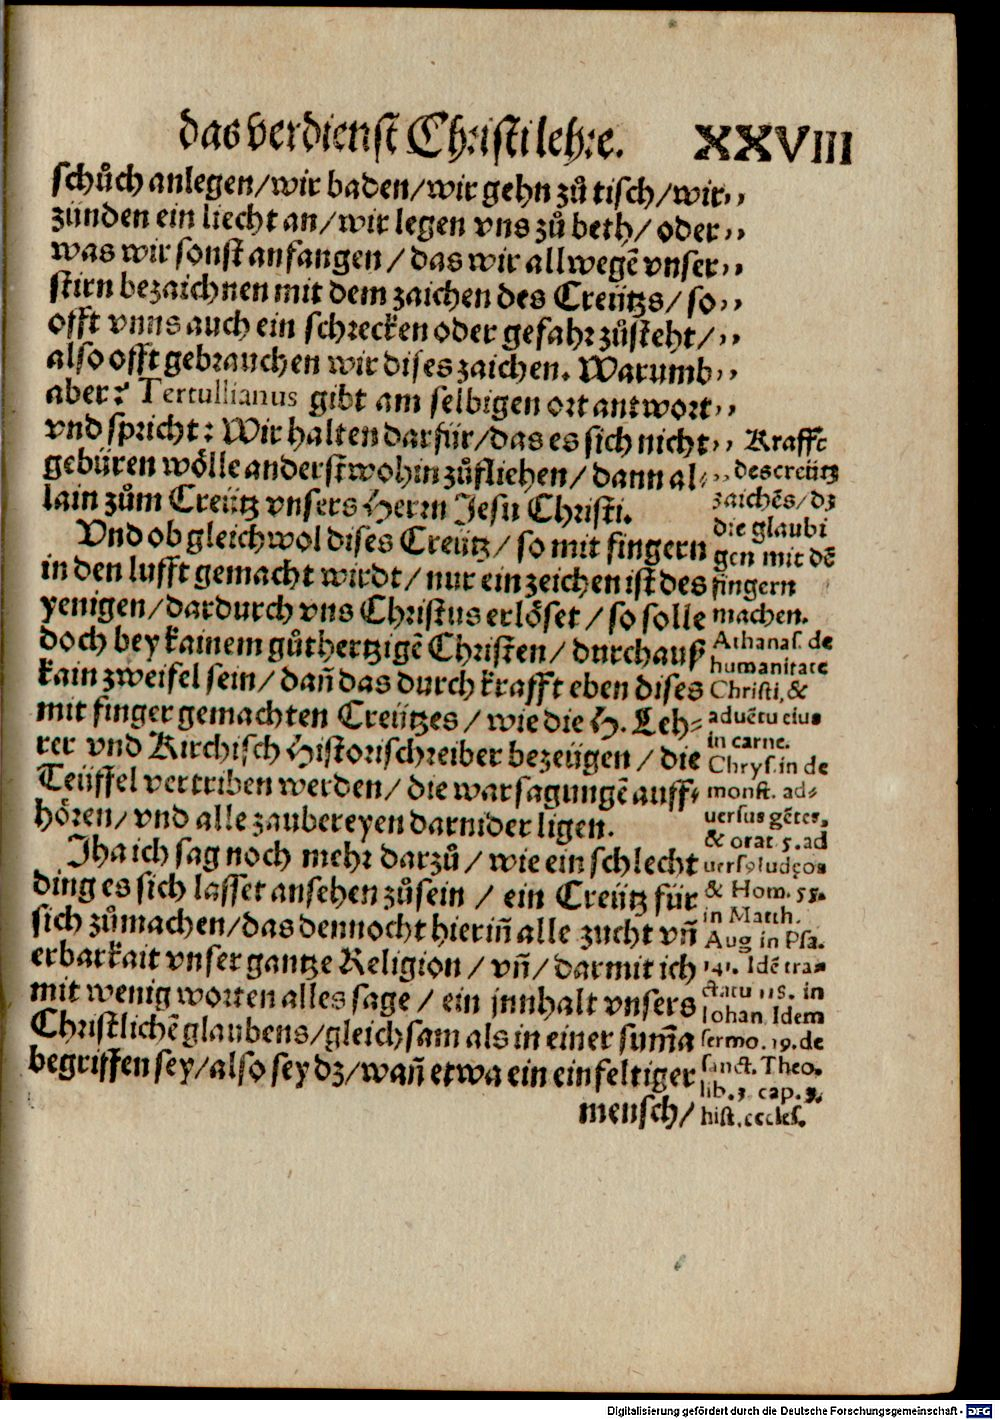 das verdienst Christi lehre. XXVIII
schůch anlegen/wir baden/wir gehn zů tisch/wir,,
zünden ein liecht an/wir legen vns zů beth/oder,,
was wir sonst anfangen/das wir allwegẽ vnser,,
stirn bezaichnen mit dem zaichen des Creützs/so,,
offt vnns auch ein schrecken oder gefahr zůsteht/,,
also offt gebrauchen wir dises zaichen. Warumb,,
aber? Tertullianus gibt am selbigen ort antwort,,
vnd spricht: Wir halten darfür/das es sich nicht,,
gebüren wölle anderstwohin zůfliehen/dann al-,,
lain zům Creütz vnsers Herrn Jesu Christi.
Vnd ob gleichwol dises Creütz/so mit fingern
in den lufft gemacht wirdt/nur ein zeichen ist des
yenigen/dardurch vns Christus erlöset/so solle
doch bey kainem gůthertzigẽ Christen/durchauß
kain zweifel sein/dañ das durch krafft eben dises
mit finger gemachten Creützes/wie die H. Leh-
rer vnd Kirchisch Historischreiber bezeügen/die
Teüffel vertriben werden/die warsagungẽ auff-
hören/vnd alle zaubereyen darnider ligen.
Jha ich sag noch mehr darzů/wie ein schlecht
ding es sich lasset ansehen zůsein/ein Creütz für
sich zůmachen/das dennocht hieriñ alle zucht vñ
erbarkait vnser gantze Religion/vñ/darmit ich
mit wenig worten alles sage/ein jnnhalt vnsers
Christlichẽ glaubens/gleichsam als in einer sum̃a
begriffen sey/also sey dz/wañ etwa ein einfeltiger
mensch/
Krafft
des creütz
zaichẽs/dz
die glaubi
gen mit dẽ
fingern
machen.
Athanas. de
humanitate
Christi, &
aduẽtu eius
in carne.
Chrys. in de
monst. ad-
uersus gẽtes,
& orat. 5. ad
uersꝰ Iudęos
& Hom. 55.
in Matth.
Aug in Psa.
141. Idẽ tra-
ctatu 118. in
Iohan Idem
sermo. 19. de
sanct. Theo.
lib. 3 cap. 3.
hist. eccles.
Digitalisierung gefördert durch die Deutsche Forschungsgemeinschaft - DFG